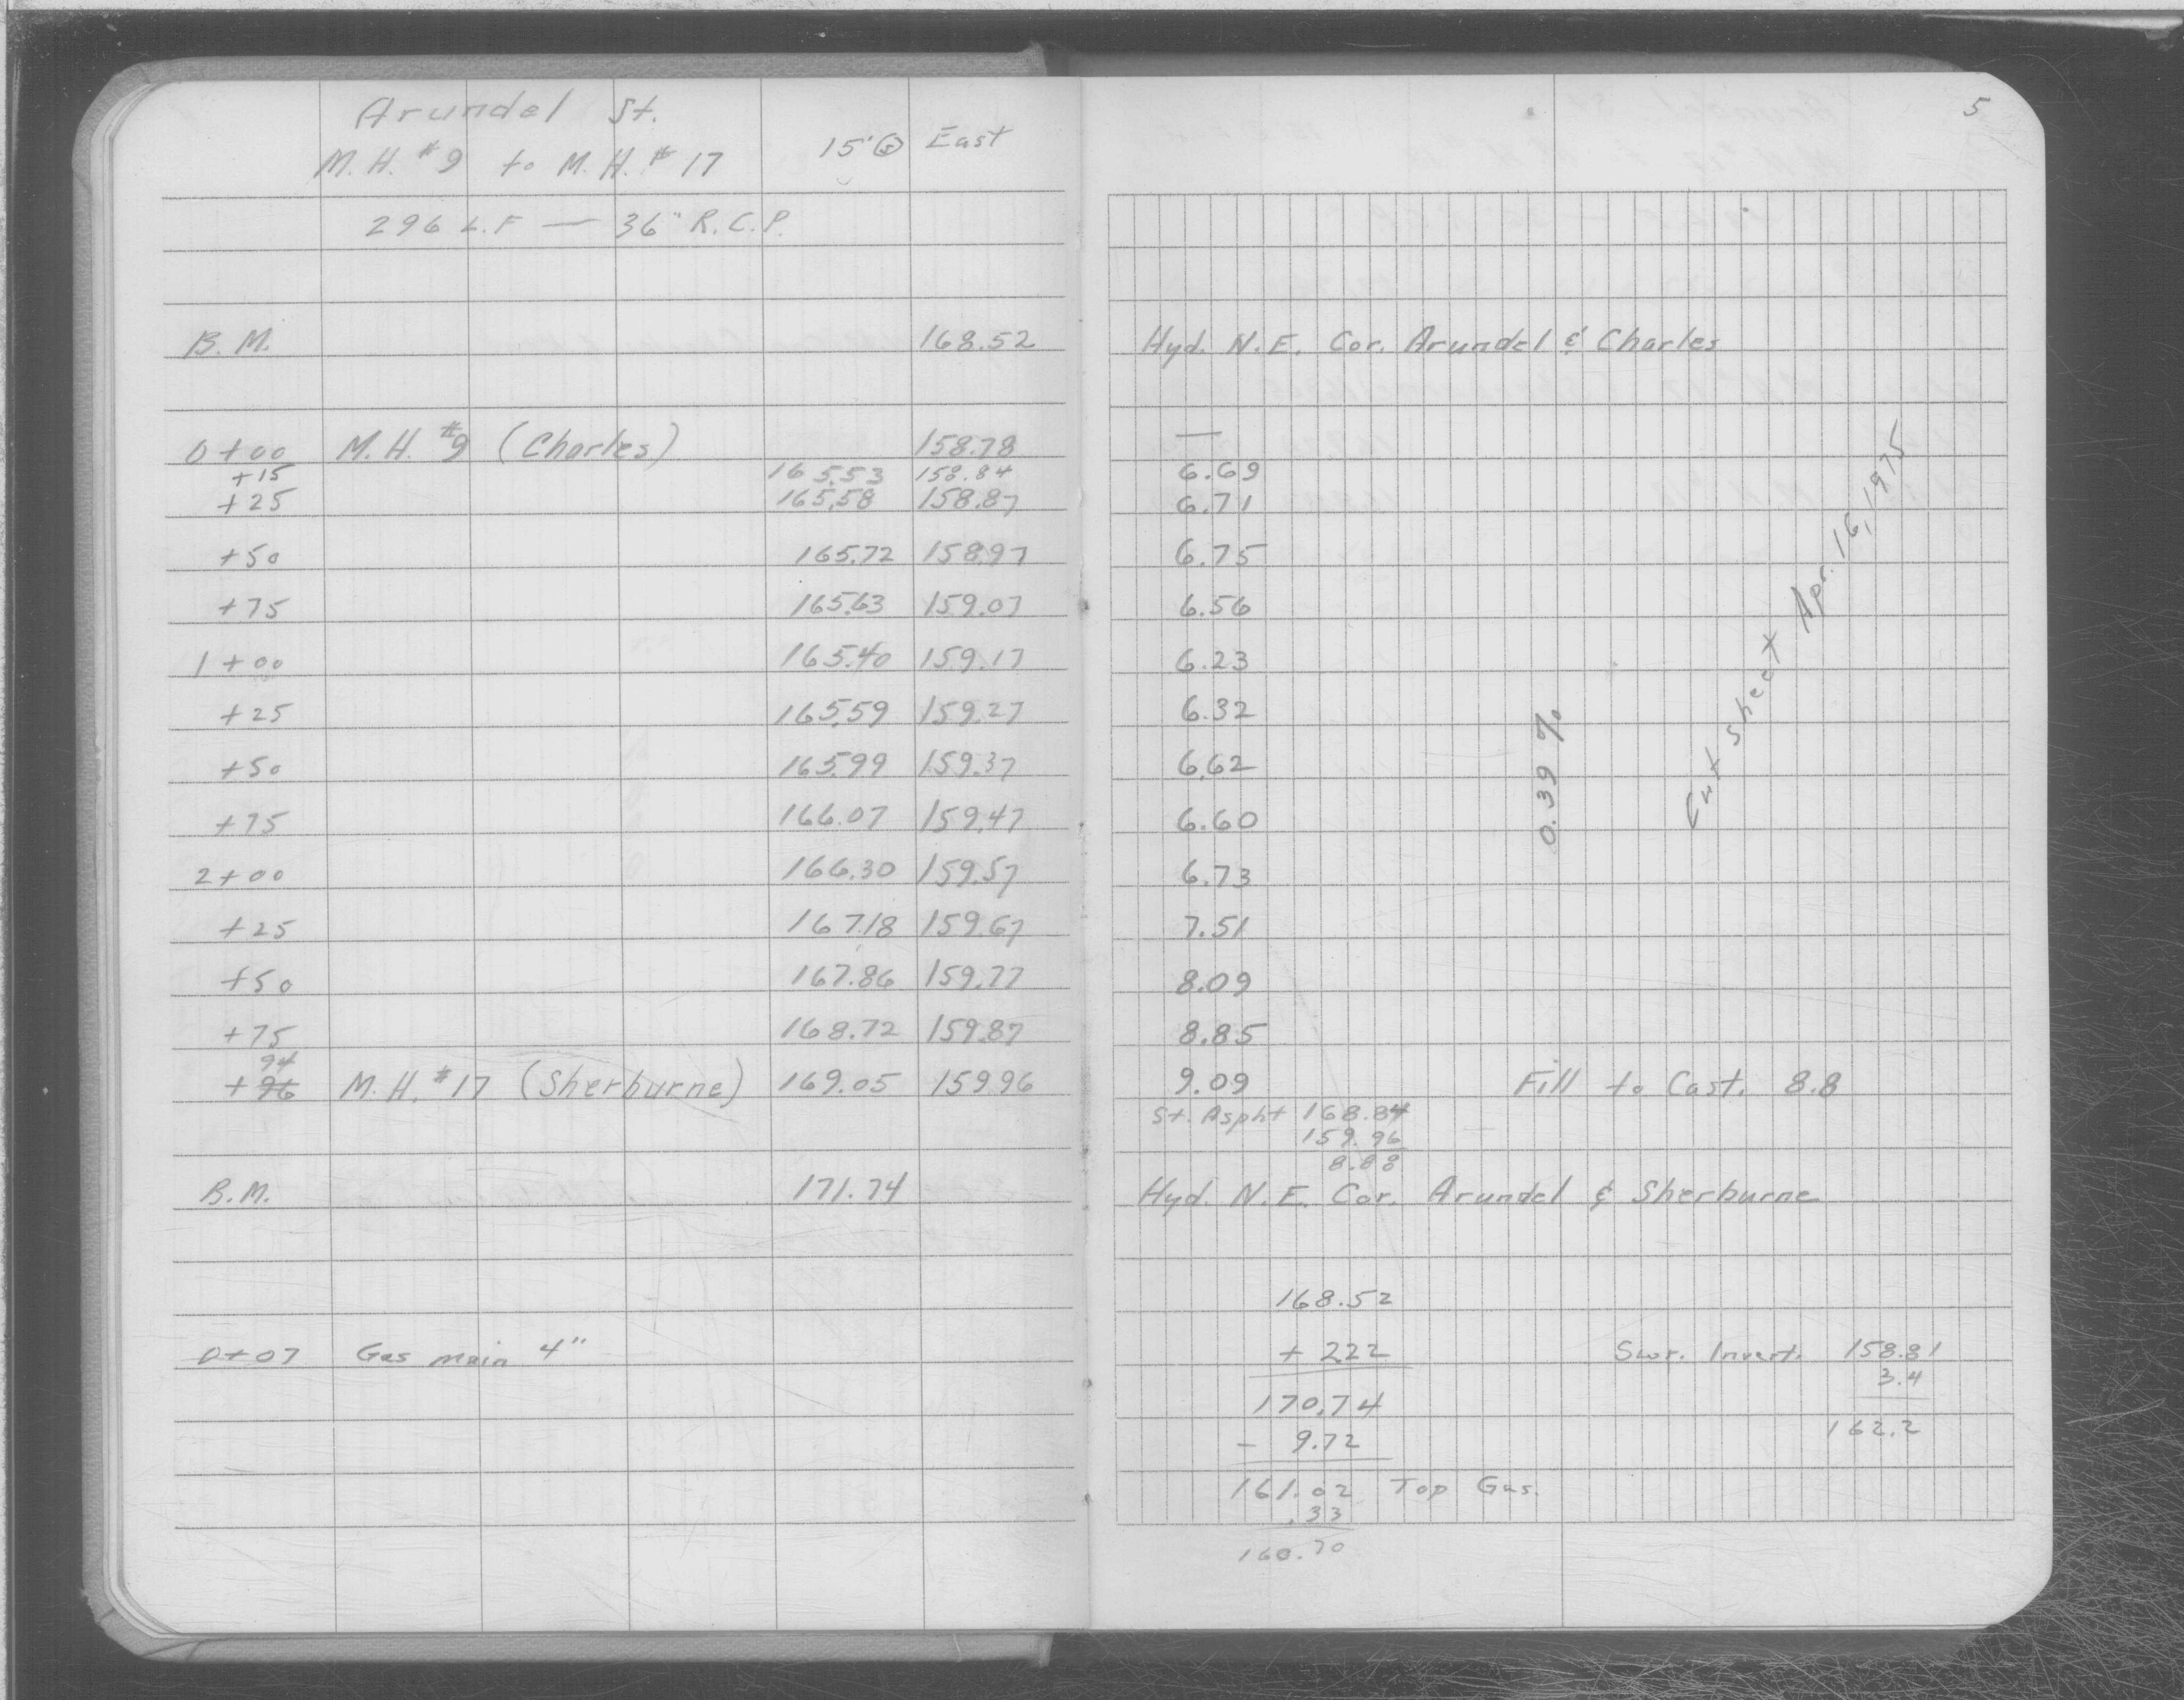 Arundel St.
M.H. #9 to M.H. #17 15' @ East
296 L.F — 36" R.C.P.
B.M. 168.52
0+00 M.H. #9 (Charles) 158.78
+15 165.53 158.84
+25 165.58 158.87
+50 165.72 158.97
+75 165.63 159.07
1+00 165.40 159.17
+25 165.59 159.27
+50 165.99 159.37
+75 166.07 159.47
2+00 166.30 159.57
+25 167.18 159.67
+50 167.86 159.77
+75 168.72 159.87
94
+96 M.H. #17 (Sherburne) 169.05 159.96
B.M. 171.74
0+07 Gas main 4"
5
Hyd. N.E. Cor. Arundel & Charles
—
6.69
6.71
6.75
6.56
6.23
6.32
6.62
6.60
6.73
7.51
8.09
8.85
9.09 Fill to Cast. 8.8
0.39 %
Cut sheet Apr. 16, 1975
St. Aspht 168.84
159.96
8.88
Hyd. N.E. Cor. Arundel & Sherburne
168.52
+ 2.22
170.74
- 9.72
161.02 Top Gas.
.33
160.70
Swr. Invert. 158.81
3.4
162.2